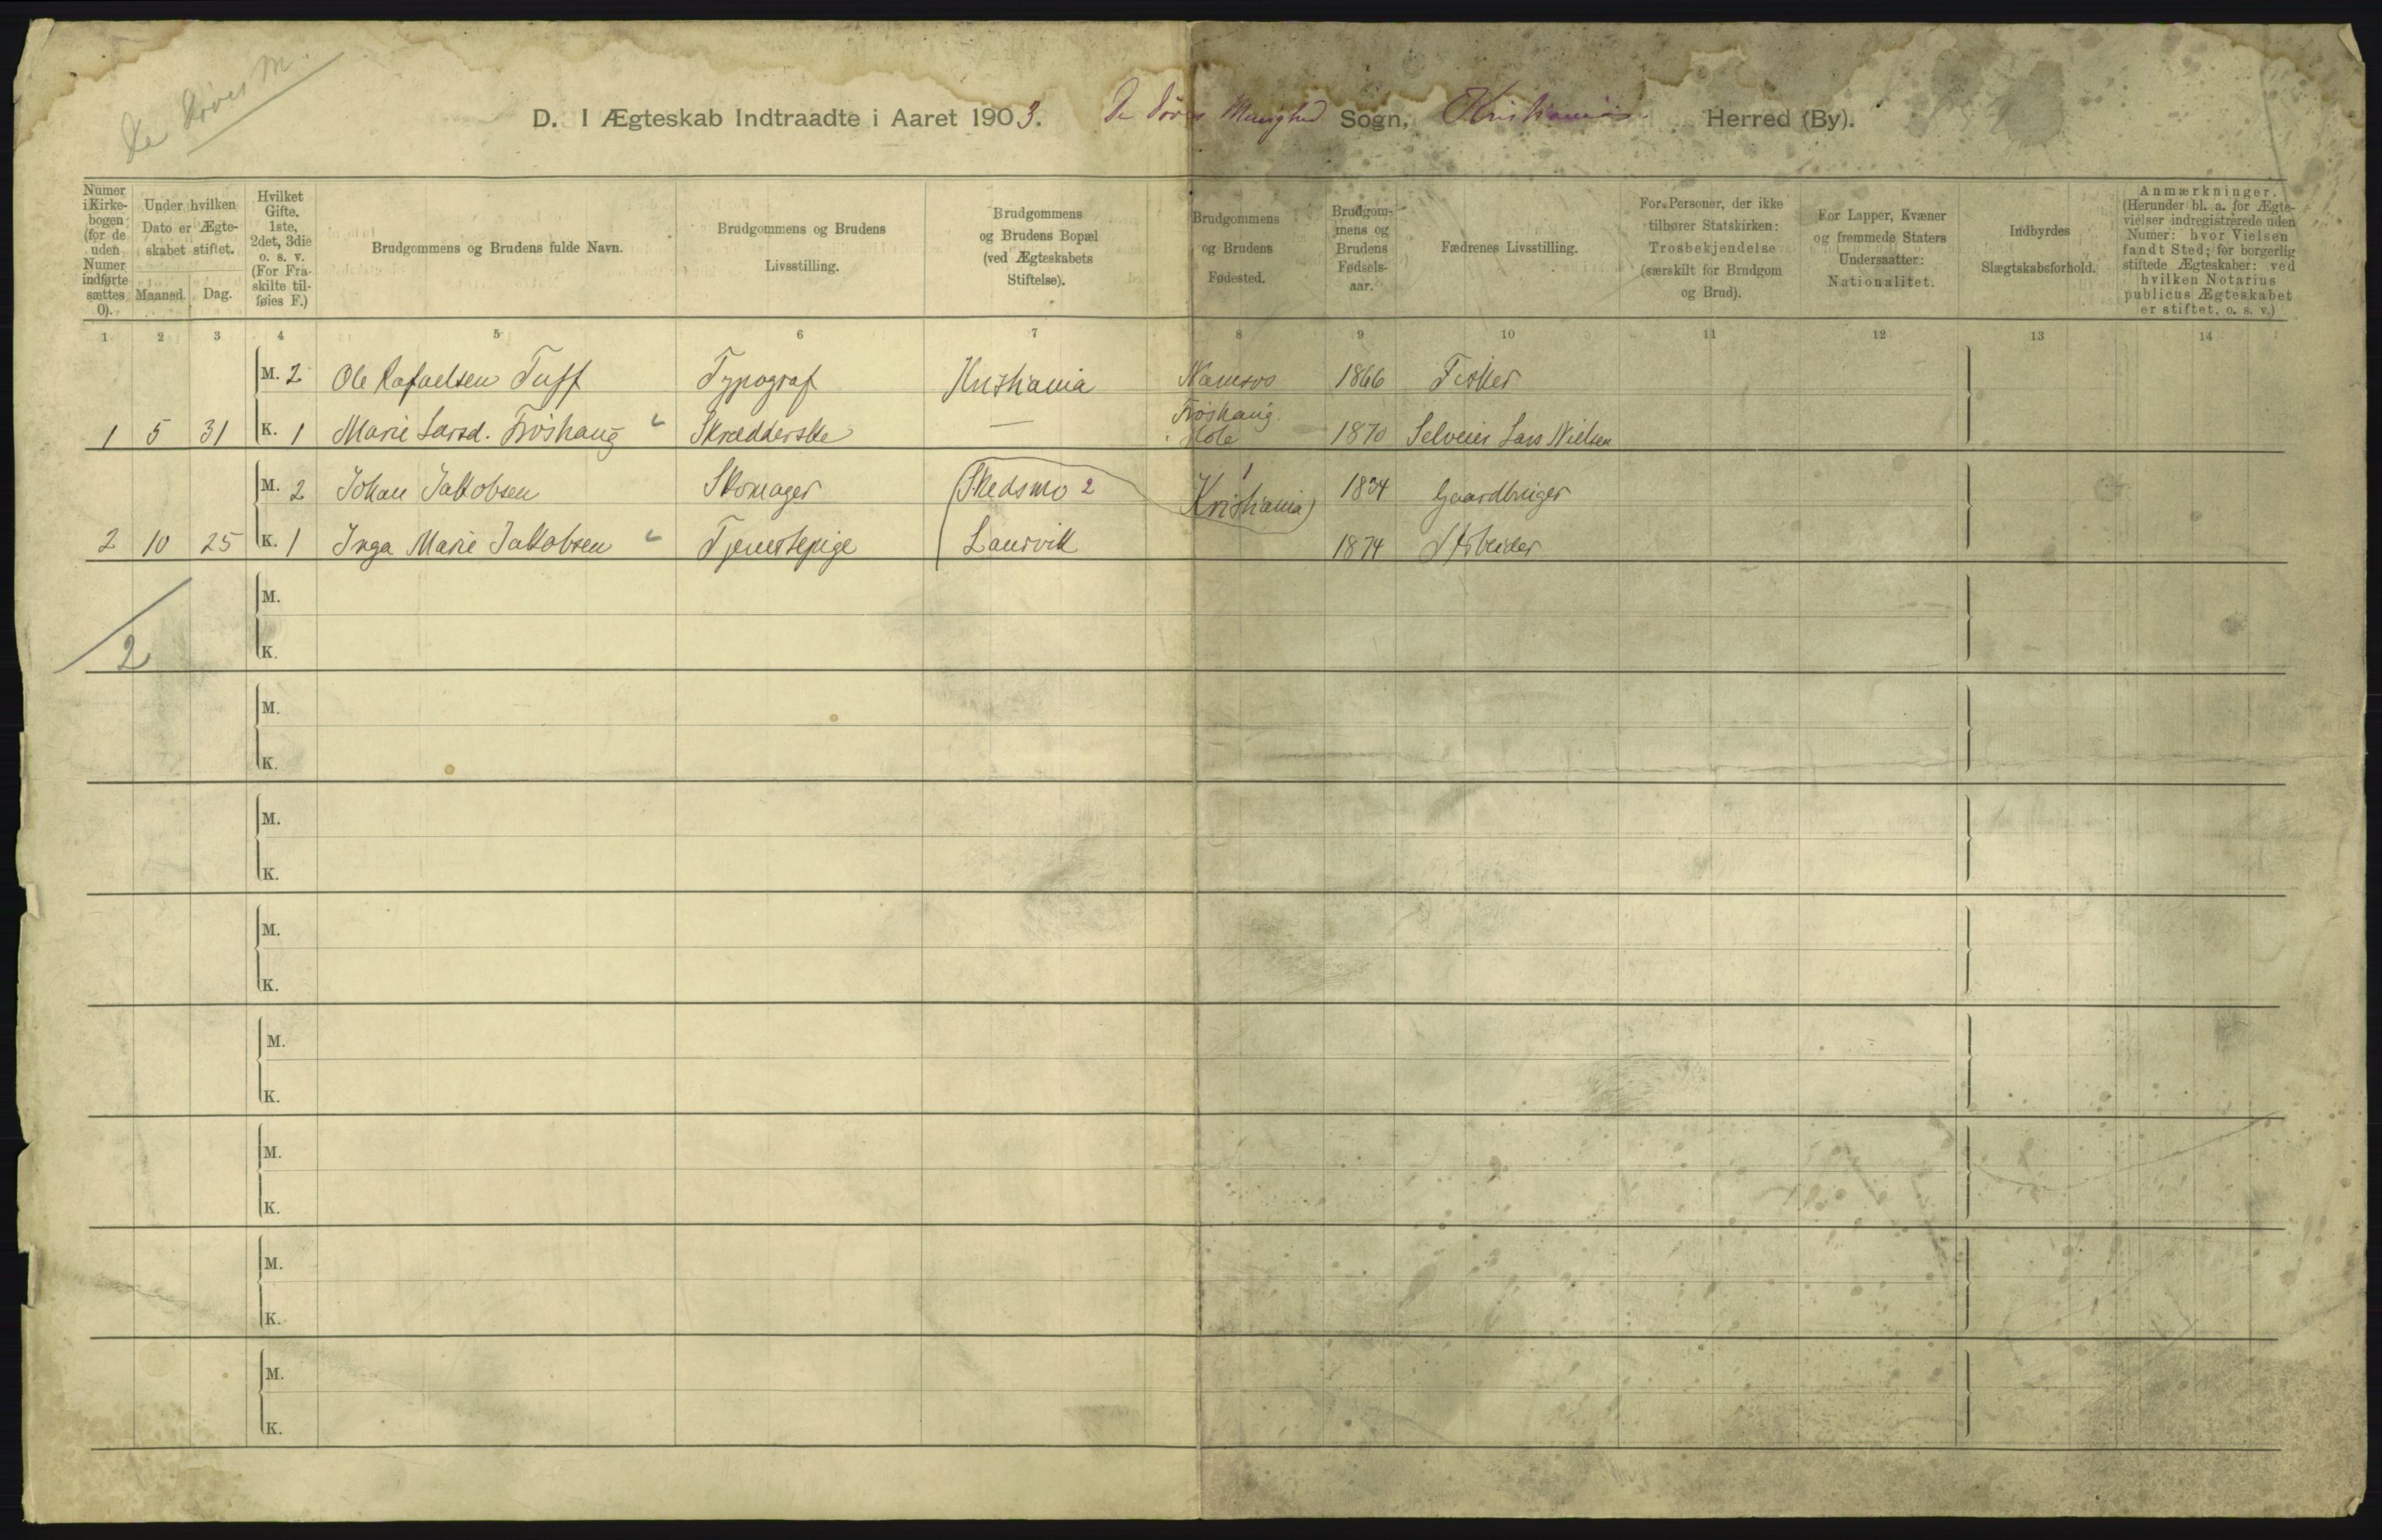 De Døves M.
D. I Ægteskab Indtraadte i Aaret 1903. De Døves Menighed Sogn, Kristiania Herred (By).
Numer i Kirkebogen (for de uden Numer indførte sættes 0).
Under hvilken Dato er Ægteskabet stiftet.
Maaned. Dag.
Hvilket Gifte. 1ste, 2det, 3die o. s. v. (For Fraskilte tilføies F.)
Brudgommens og Brudens fulde Navn.
Brudgommens og Brudens Livsstilling.
Brudgommens og Brudens Bopæl (ved Ægteskabets Stiftelse).
Brudgommens og Brudens Fødested.
Brudgommens og Brudens Fødselsaar.
Fædrenes Livsstilling.
For Personer, der ikke tilhører Statskirken: Trosbekjendelse (særskilt for Brudgom og Brud).
For Lapper, Kvæner og fremmede Staters Undersaatter: Nationalitet.
Indbyrdes Slægtskabsforhold.
Anmærkninger. (Herunder bl. a. for Ægtevielser indregistrerede uden Numer: hvor Vielsen fandt Sted; for borgerlig stiftede Ægteskaber: ved hvilken Notarius publicus Ægteskabet er stiftet. o. s. v.)
1 2 3 4 5 6 7 8 9 10 11 12 13 14
M. 2 Ole Rafaelsen Tuff Typograf Kristiania Namsos 1866 Fisker
1 5 31 K. 1 Marie Larsd. Frøshaug Skrædderske — Frøshaug Hole 1870 Selveier Lars Nielsen
M. 2 Johan Jakobsen Skomager (Skedsmo 2 Kristiania) 1 1834 Gaardbruger
2 10 25 K. 1 Inga Marie Jakobsen Tjenestepige Laurvik 1874 Arbeider
M.
2 K.
M.
K.
M.
K.
M.
K.
M.
K.
M.
K.
M.
K.
M.
K.